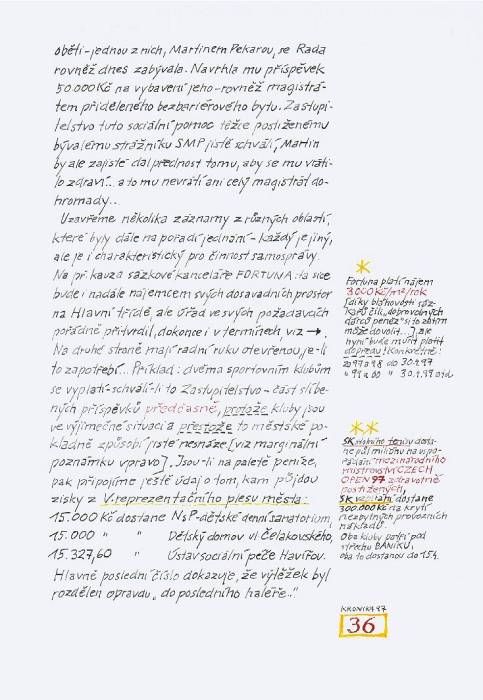 oběti-jednou z nich, Martinem Pekarou, se Rada
rovněž dnes zabývala. Navrhla mu příspěvek
50.000 Kč na vybavení jeho-rovněž magistrá-
tem přiděleného bezbariérového bytu. Zastupi-
telstvo tuto sociální pomoc těžce postiženému
bývalému strážníku SMP jistě schválí, Martin
by ale zajisté dal přednost tomu, aby se mu vráti-
lo zdraví... a to mu nevrátí ani celý magistrát do-
hromady...
Uzavřeme několika záznamy z různých oblastí,
které byly dále na pořadí jednání - každý je jiný,
ale je i charakteristický pro činnost samosprávy.
Na př. kauza sázkové kanceláře FORTUNA: ta sice
bude i nadále nájemcem svých dosavadních prostor
na Hlavní třídě, ale úřad ve svých požadavcích
pořádně přitvrdil, dokonce i v termínech, viz →.
Na druhé straně mají radní ruku otevřenou, je-li
to zapotřebí... Příklad: dvěma sportovním klubům
se vyplatí-schválí-li to Zastupitelstvo-část slíbe-
ných příspěvků předčasně, protože kluby jsou
ve výjimečné situaci a přestože to městské po-
kladně způsobí jisté nesnáze [viz marginální
poznámku vpravo]. Jsou-li na paletě peníze,
pak připojíme ještě údaj o tom, kam půjdou
zisky z V. reprezentačního plesu města:
15.000 Kč dostane NsP-dětské denní sanatorium,
15.000 " " Dětský domov ul. Čelakovského,
15.327,60 " Ústav sociální péče Havířov.
Hlavně poslední číslo dokazuje, že výtěžek byl
rozdělen opravdu „do posledního haléře..."
Fortuna platí nájem
3.000 Kč/m²/rok
[díky bláhovosti sáz-
kařů čili „dobrovolných
dárců peněz" si to ovšem
může dovolit...] ale
nyní bude muset platit
dopředu! Konkrétně:
SK stolního tenisu dosta-
ne půl miliónu na uspo-
řádání mezinárodního
mistrovství CZECH
OPEN 97 zdravotně
postižených,
SK vzpírání dostane
300.000 Kč na krytí
nezbytných provozních
nákladů.
Oba kluby patří pod
střechu BANÍKU,
oba to dostanou do 15.4.
KRONIKA 97
36